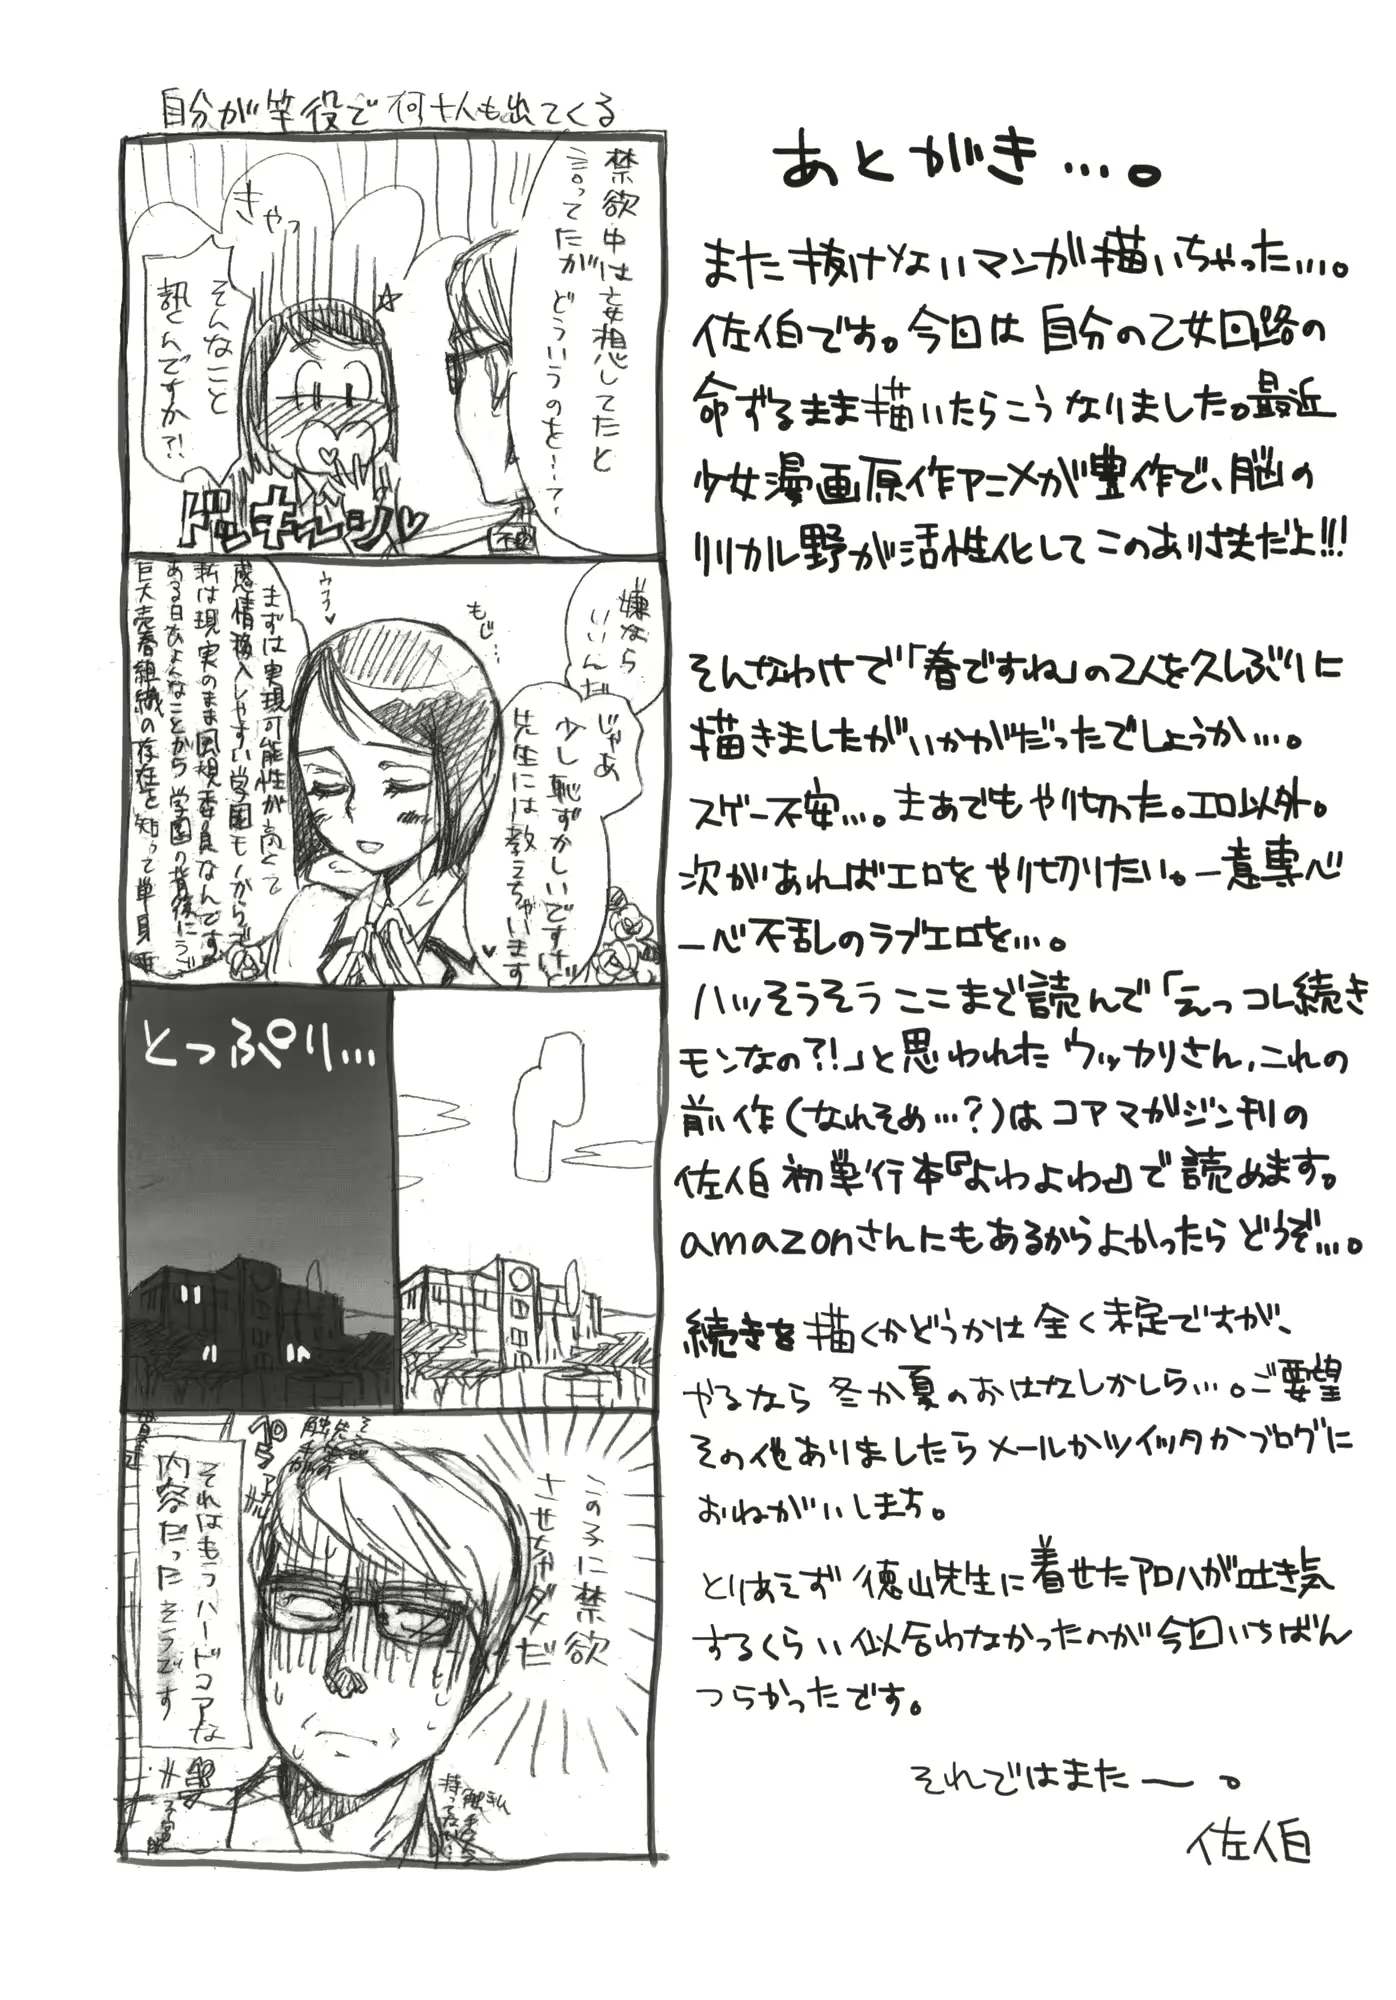 あとがき…。
また抜けないマンガ描いちゃった…。
佐伯です。今回は自分の乙女回路の
命ずるまま描いたらこうなりました。最近
少女漫画原作アニメが豊作で、脳の
リリカル野が活性化してこのありさまだよ!!!
そんなわけで「春ですね」の2人を久しぶりに
描きましたがいかがだったでしょうか…。
スゲー不安…。まあでもやり切った。エロ以外。
次があればエロをやり切りたい。一意専心
一心不乱のラブエロを…。
ハッそうそうここまで読んで「えっコレ続き
モンなの?!」と思われたウッカリさん、これの
前作(なれそめ…?)はコアマガジン刊の
佐伯初単行本『よわよわ』で読めます。
amazonさんにもあるからよかったらどうぞ…。
続きを描くかどうかは全く未定ですが、
やるなら冬か夏のおはなしかしら…。ご要望
その他ありましたらメールかツイッタかブログに
おねがいしまち。
とりあえず徳山先生に着せたアロハが吐き気
するくらい似合わなかったのが今回いちばん
つらかったです。
それではまたー。
佐伯
自分が竿役で何十人も出てくる
禁欲中は妄想してたと
言ってたが
どういうのを…?
きゃっ
そんなこと
訊くんですか?!
ドッキーン♡
嫌なら
いいんだ
じゃあ
少し恥ずかしいですけど
先生には教えちゃいます
もじ…
ウフフ
まずは実現可能性が高くて
感情移入しやすい学園モノからで
私は現実のまま風規委員なんです
ある日ひょんなことから学園の背後にうご
巨大売春組織の存在を知って単身
とっぷり…
この子に禁欲
させちゃダメだ
それはもうハードコアな
内容だったそうです